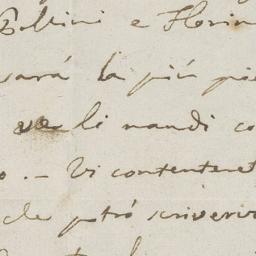 Bellini e Florim
sará la più pic
ve li mandi co
o. – Vi contenteret
che potró scriverv